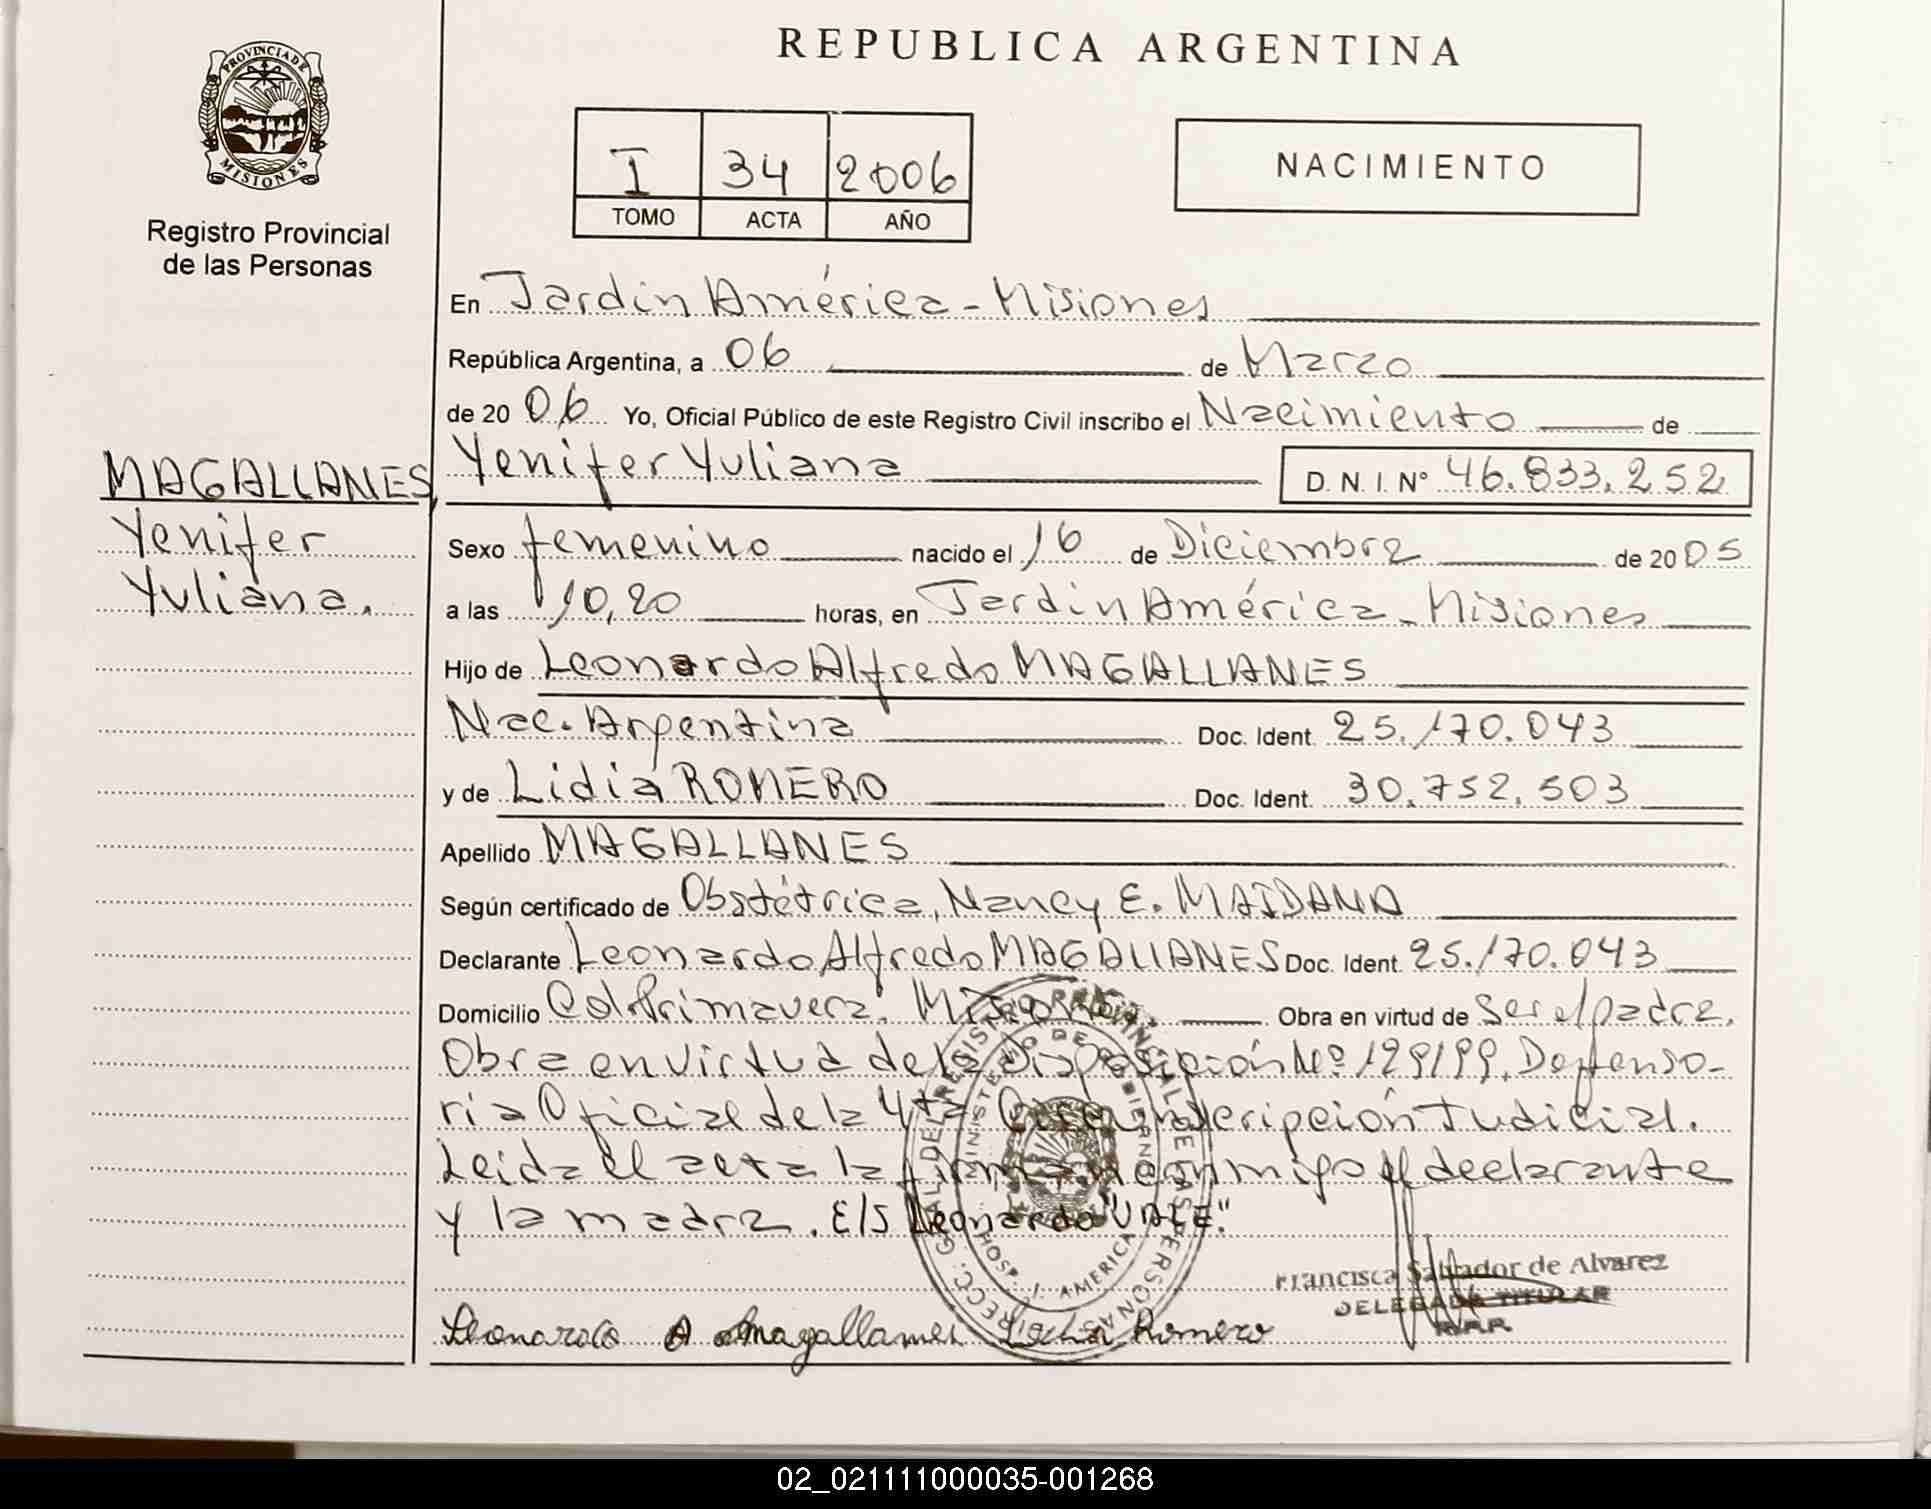 REPUBLICA ARGENTINA
PROVINCIA DE MISIONES
Registro Provincial
de las Personas
I 34 2006
TOMO ACTA AÑO
NACIMIENTO
En Jardín América - Misiones
República Argentina, a 06 de Marzo
de 20 06 Yo, Oficial Público de este Registro Civil inscribo el Nacimiento de
MAGALLANES,
Yenifer
Yuliana.
Yenifer Yuliana D. N. I. N° 46.833.252
Sexo femenino nacido el 16 de Diciembre de 20 05
a las 10,20 horas, en Jardín América - Misiones
Hijo de Leonardo Alfredo MAGALLANES
Nac. Argentina Doc. Ident. 25.170.043
y de Lidia ROMERO Doc. Ident. 30.752.503
Apellido MAGALLANES
Según certificado de Obstétrica, Nancy E. MAIDANA
Declarante Leonardo Alfredo MAGALLANES Doc. Ident. 25.170.043
Domicilio Col. Primavera. Misiones. Obra en virtud de ser el padre.
Obra en virtud de la Disposición Nº 129/99, Defenso-
ria Oficial de la 4ta Circunscripción Judicial.
Leida el acta la firman conmigo el declarante
y la madre. E/S Leonardo "VALE".
DIRECC. GRAL DEL REGISTRO PROVINCIAL DE LAS PERSONAS
MINISTERIO DE GOBIERNO
HOSP. J. AMERICA
Francisca Salvador de Alvarez
DELEGADA TITULAR
Leonardo A Magallanes Lidia Romero
02_021111000035-001268